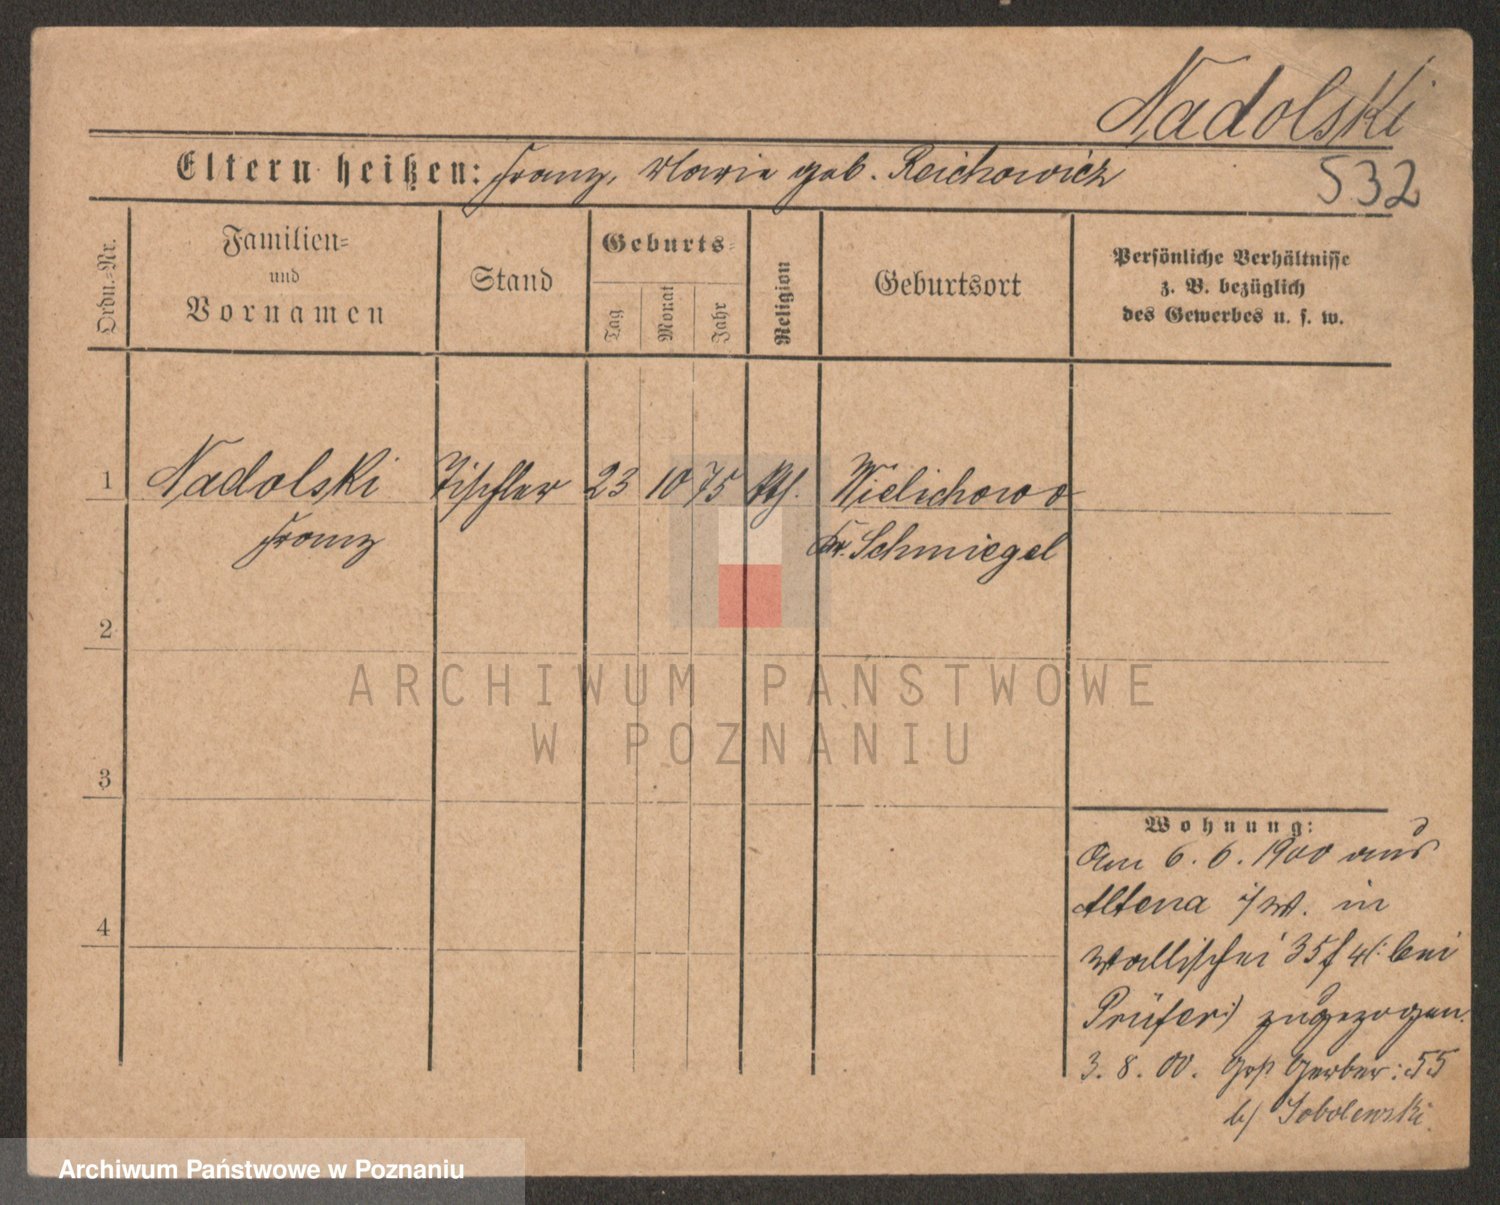 Nadolski
Eltern heißen: Franz, Marie geb. Reichowicz
532
Ordn.-Nr.
Familien- und Vornamen
Stand
Geburts-
Tag
Monat
Jahr
Religion
Geburtsort
Persönliche Verhältnisse
z. B. bezüglich
des Gewerbes u. s. w.
1 Nadolski Tischler 23 10 75 kth. Wielichowo
Franz Kr. Schmiegel
2
3
4
Wohnung:
Am 6.6.1900 aus
Altena i/W. in
Wallischei 35 f 4 /: bei
Prüfer :/ zugezogen.
3. 8. 00. Gerber: 55
b/ Sobolewski.
ARCHIWUM PAŃSTWOWE
W POZNANIU
Archiwum Państwowe w Poznaniu